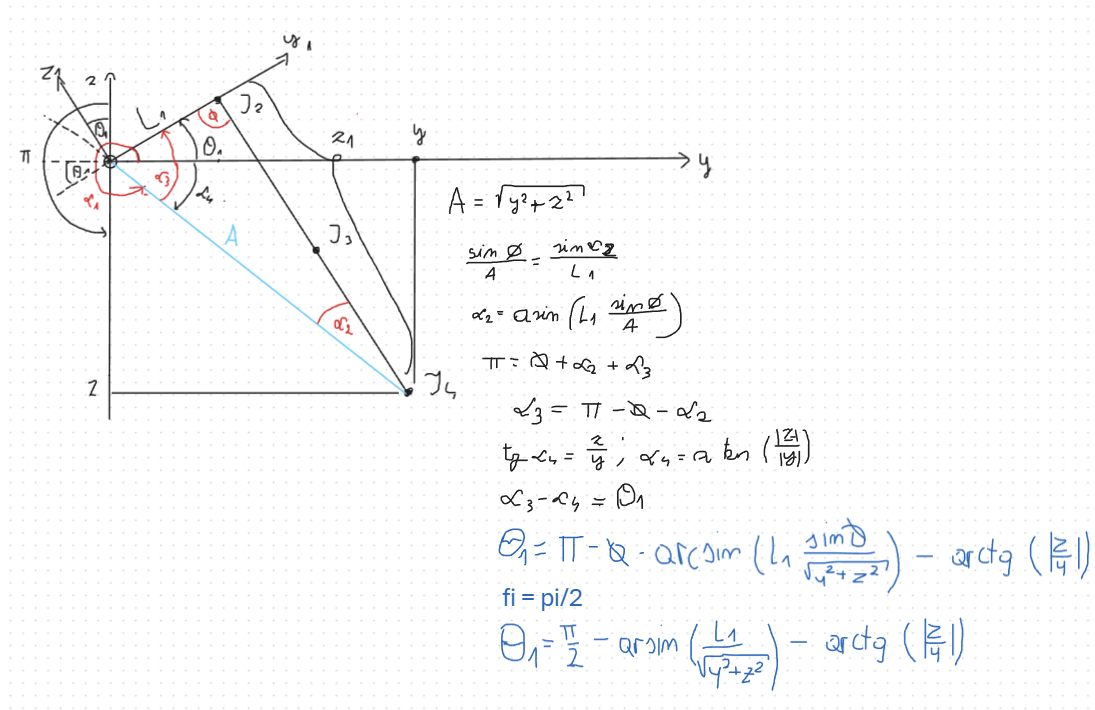 y₁
z₁
z
J₂
L₁
ϕ
θ₁
z₁
y
π
θ₁
θ₁
α₃
y
α₁
α₄
A = √(y²+z²)
A
J₃
sin ∅ / A = sin α₂ / L₁
α₂ = asin (L₁ sin∅ / A)
α₂
π = ∅ + α₂ + α₃
z
J₄
α₃ = π - ∅ - α₂
tg α₄ = z/y ; α₄ = a tan (|z|/|y|)
α₃ - α₄ = θ₁
θ₁ = π - ∅ - arcsin (L₁ sin∅ / √(y²+z²)) - arctg (|z/y|)
fi = pi/2
θ₁ = π/2 - arsin (L1 / √(y²+z²)) - arctg (|z/y|)